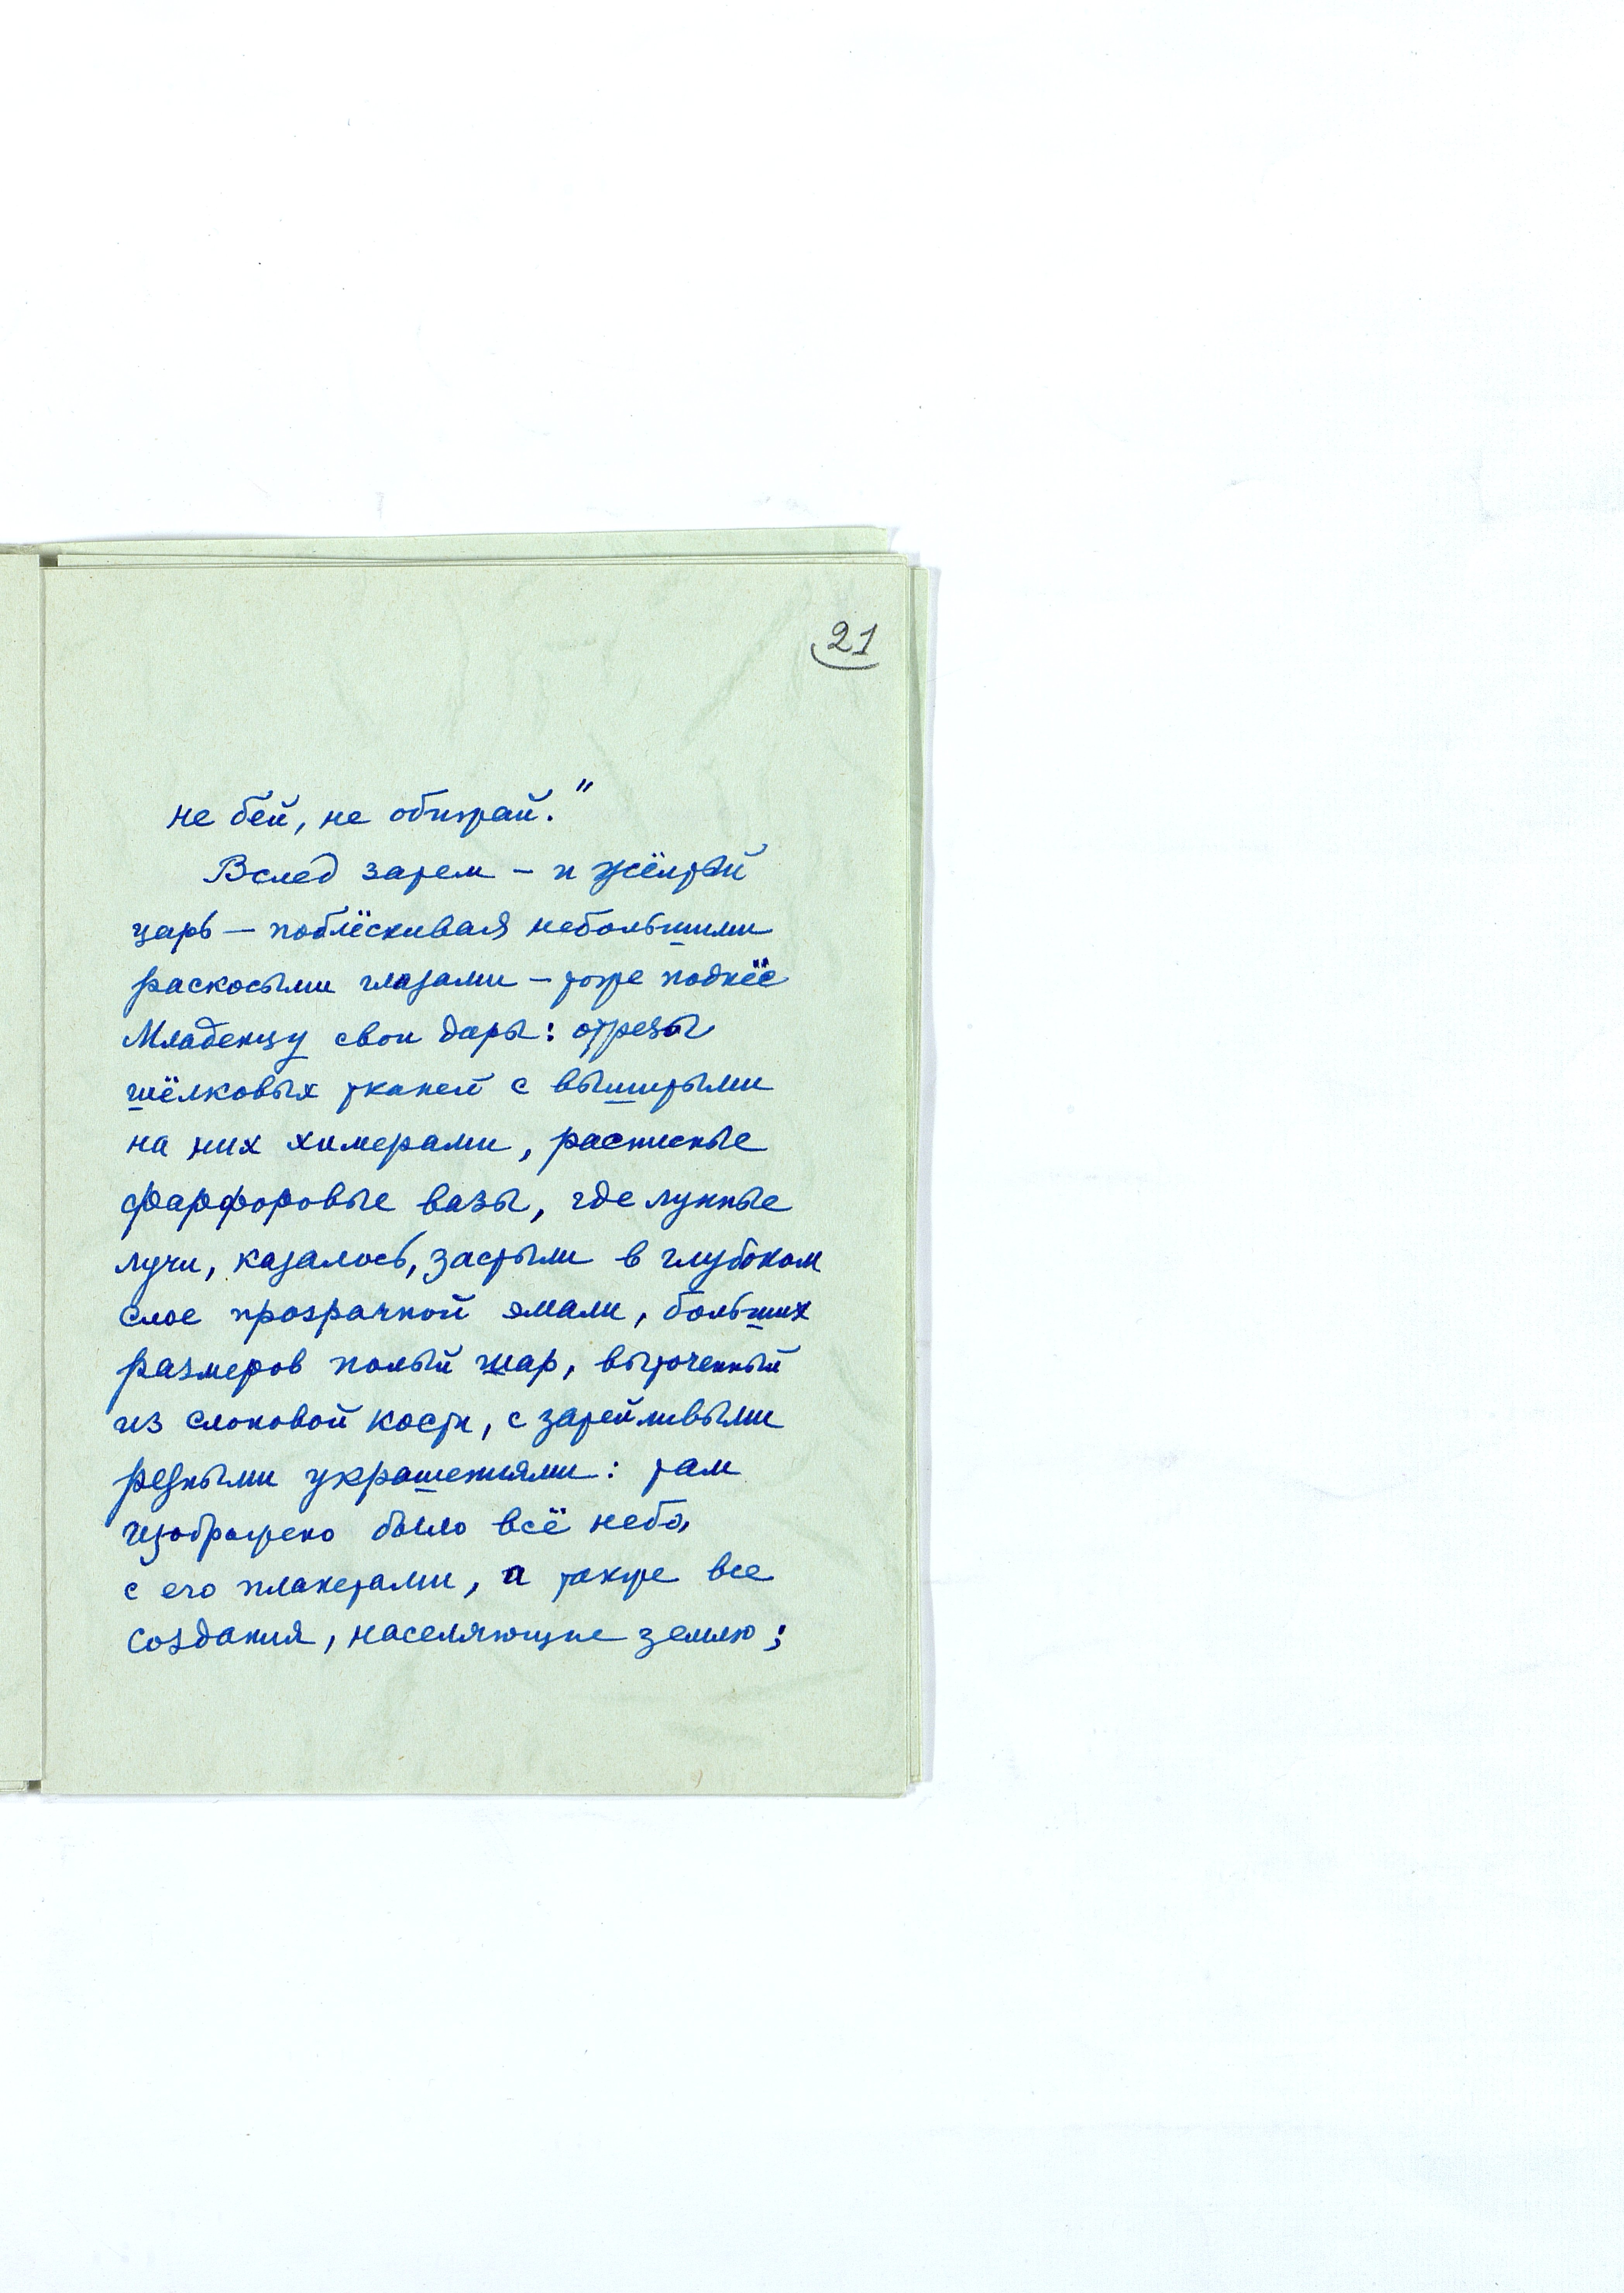 21
не бей, не обирай."
Вслед затем – и жёлтый
царь – поблёскивая небольшими
раскосыми глазами – тоже поднёс
Младенцу свои дары: отрезы
шёлковых тканей с вышитыми
на них химерами, расписные
фарфоровые вазы, где лунные
лучи, казалось, застыли в глубоком
слое прозрачной эмали, больших
размеров полый шар, выточенный
из слоновой кости, с затейливыми
резными украшениями: там
изображено было всё небо,
с его планетами, а также все
создания, населяющие землю;